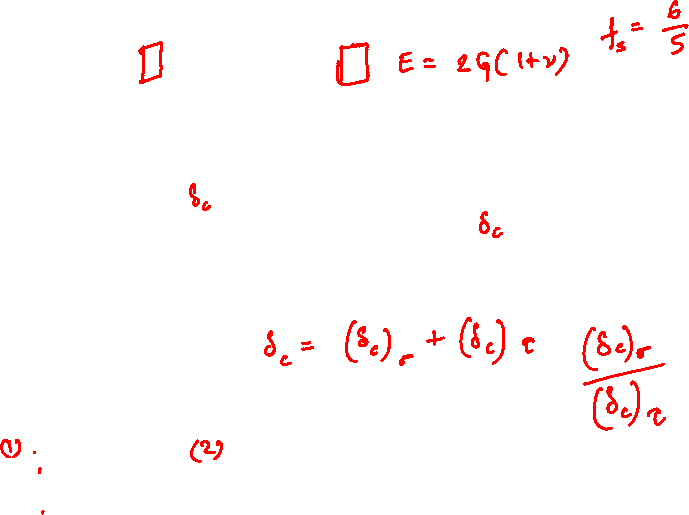 E = 2G(1+ν) f_s = 6/5
δ_c
δ_c
δ_c = (δ_c)_σ + (δ_c)_τ (δ_c)_σ/(δ_c)_τ
(1) (2)